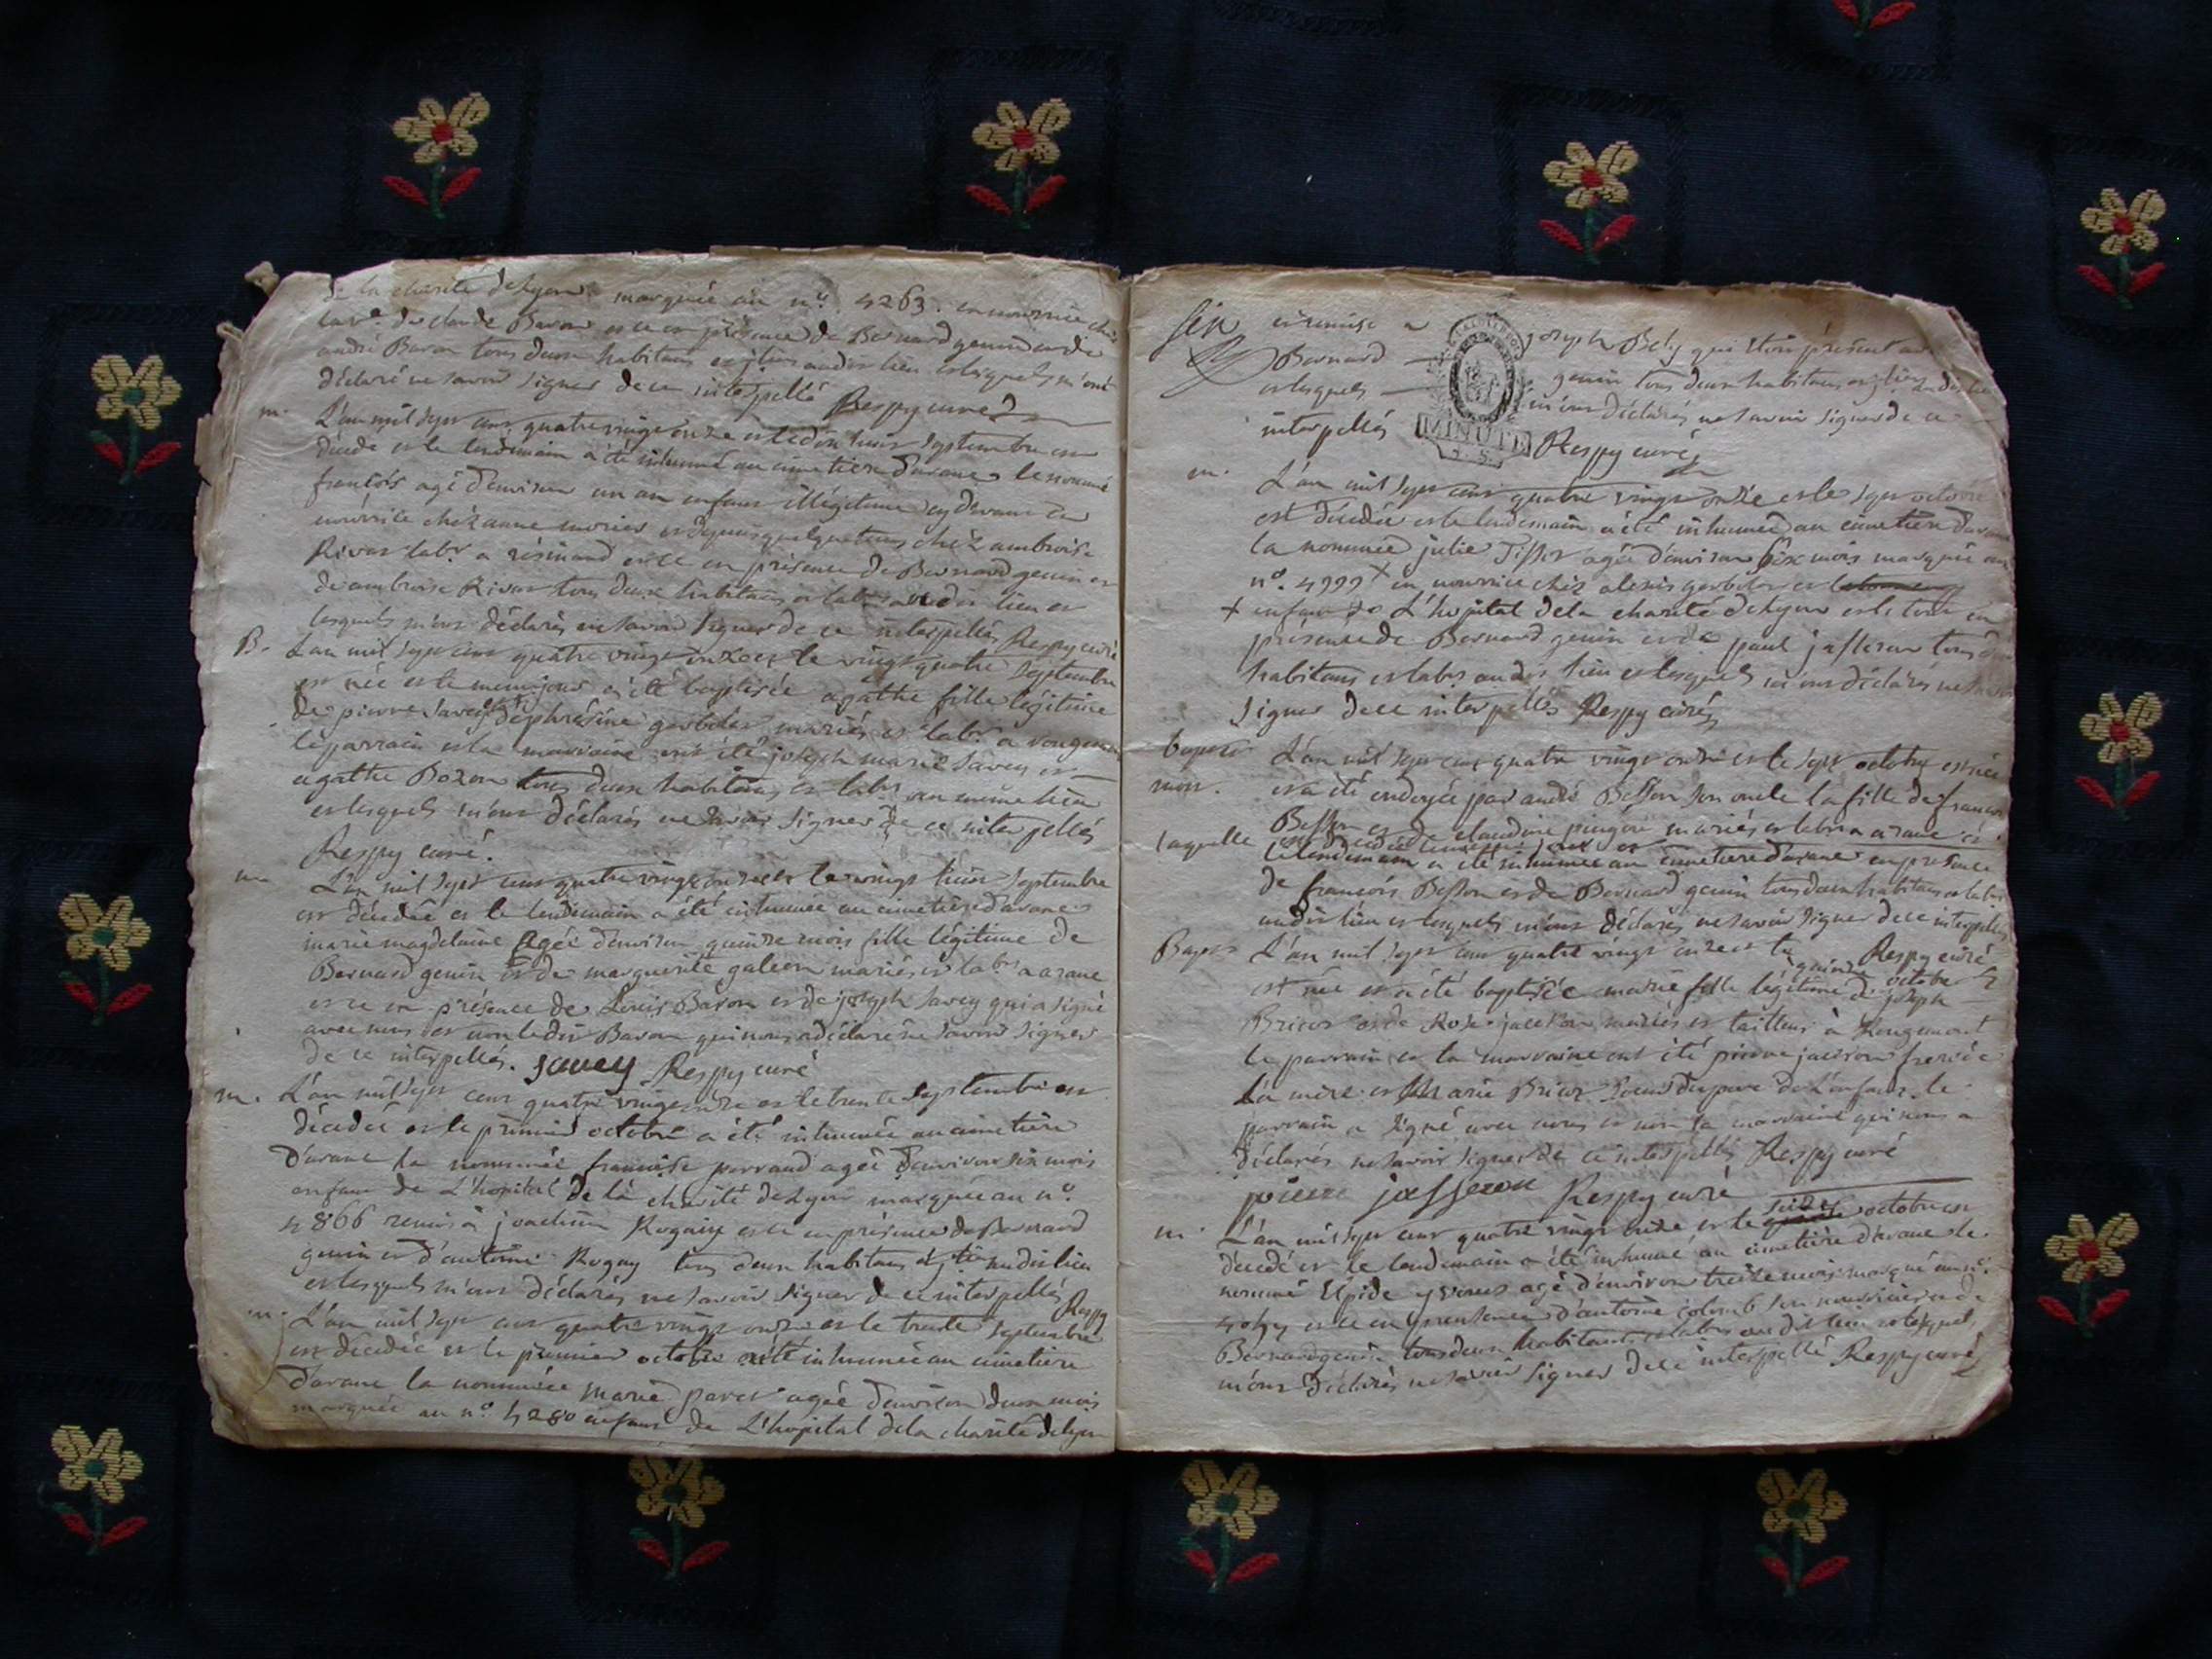 de la charité de Lyon marquée au n.º 4263. en nourrice chez
la v.e de claude Baron et ce en présence de Bernard genin et de
andré Baron tous deux habitans audit lieu et lesquels m'ont
déclaré ne savoir signer de ce interpellé Respy curé
m. L'an mil sept cent quatre vingt onze et le dix huit septembre est
décédé et le lendemain a été inhumé au cimetière d'arane le nommé
françois agé d'environ un an enfant illégitime cy devant en
nourrice chez anne et depuis quelque tems chez ambroise
Rivat lab.r a résinand et ce en présence de Bernard genin et
de ambroise Rivat tous deux habitans et lab.rs audit lieu et
lesquels m'ont déclarés ne savoir signer de ce interpellés Respy curé
B. L'an mil sept cent quatre vingt onze et le vingt quatre septembre
est née et le meme jour a été baptisée agathe fille légitime
de pierre Savey et d'ephrésine gerbolet mariés et lab.rs a rougemont
le parrain et la marraine ont été joseph marie Savey et
agathe Bozon tous deux habitans et lab.rs au même lieu
et lesquels m'ont déclarés ne savoir signer de ce interpellés
Respy curé.
m. L'an mil sept cent quatre vingt onze et le vingt huit septembre
est décédée et le lendemain a été inhumée au cimetière d'arane
marie magdelaine agée d'environ quinze mois fille légitime de
Bernard genin et de marguerite galeon mariés et lab.rs a arane
et ce en présence de Louis Baron et de joseph Savey qui a signé
avec nous et non ledit Baron qui nous a déclaré ne savoir signer
de ce interpellés. Savey Respy curé
m. L'an mil sept cent quatre vingt onze et le trente septembre est
décédée et le premier octobre a été inhumée au cimetière
d'arane la nommée françoise perraud agée d'environ six mois
enfant de L'hopital de la charité de Lyon marquée au n.º
4866 remis à joachim Rogay et ce en présence de Bernard
genin et d'antoine Rogay tous deux habitans audit lieu
et lesquels m'ont déclarés ne savoir signer de ce interpellés Respy
m. L'an mil sept cent quatre vingt onze et le trente septembre
est décédée et le premier octobre a été inhumée au cimetière
d'arane la nommée marie agée d'environ deux mois
marquée au n.º 4280 enfant de L'hopital de la charité de Lyon
six et remise a joseph Bely qui etoit présent
Bernard genin tous deux habitans audit lieu
et lesquels m'ont déclarés ne savoir signer de ce
interpellés Respy curé
MINUTE
m. L'an mil sept cent quatre vingt onze et le sept octobre
est décédée et le lendemain a été inhumée au cimetière d'arane
la nommée julie Tissot agée d'environ six mois marquée au
n.º 4999 + en nourrice chez alexis gerbolet et
+ enfant de L'hopital de la charité de Lyon et le tout en
présence de Bernard genin et de paul jasseron tous deux
habitans et lab.rs audit lieu et lesquels m'ont déclarés ne savoir
signer de ce interpellés Respy curé
bapt. L'an mil sept cent quatre vingt onze et le sept octobre est née
mort. et a été ondoyée par andré Besson son oncle la fille de françois
Besson et de claudine mariés et lab.rs a arane
laquelle est décédée le meme jour et
le lendemain a été inhumée au cimetière d'arane en présence
de françois Besson et de Bernard genin tous deux habitans et lab.rs
audit lieu et lesquels m'ont déclarés ne savoir signer de ce interpellés
Respy curé
Bapt. L'an mil sept cent quatre vingt onze et le quinze octobre
est née et a été baptisée marie fille légitime de joseph
Bricor et de Rose jasseron mariés et tailleur à Rougemont
le parrain et la marraine ont été pierre jasseron frere de
la mere et Marie Bricor soeur du pere de L'enfant le
parrain a signé avec nous et non la marraine qui nous a
déclarés ne savoir signer de ce interpellés Respy curé
pierre jasseron Respy curé
m. L'an mil sept cent quatre vingt onze et le seize octobre est
décédé et le lendemain a été inhumé au cimetière d'arane le
nommé Elpide agé d'environ treize mois marqué au n.º
et ce en présence d'antoine colomb son nourricier et de
Bernard genin tous deux habitants et lab.rs audit lieu et lesquels
m'ont déclarés ne savoir signer de ce interpellé Respy curé